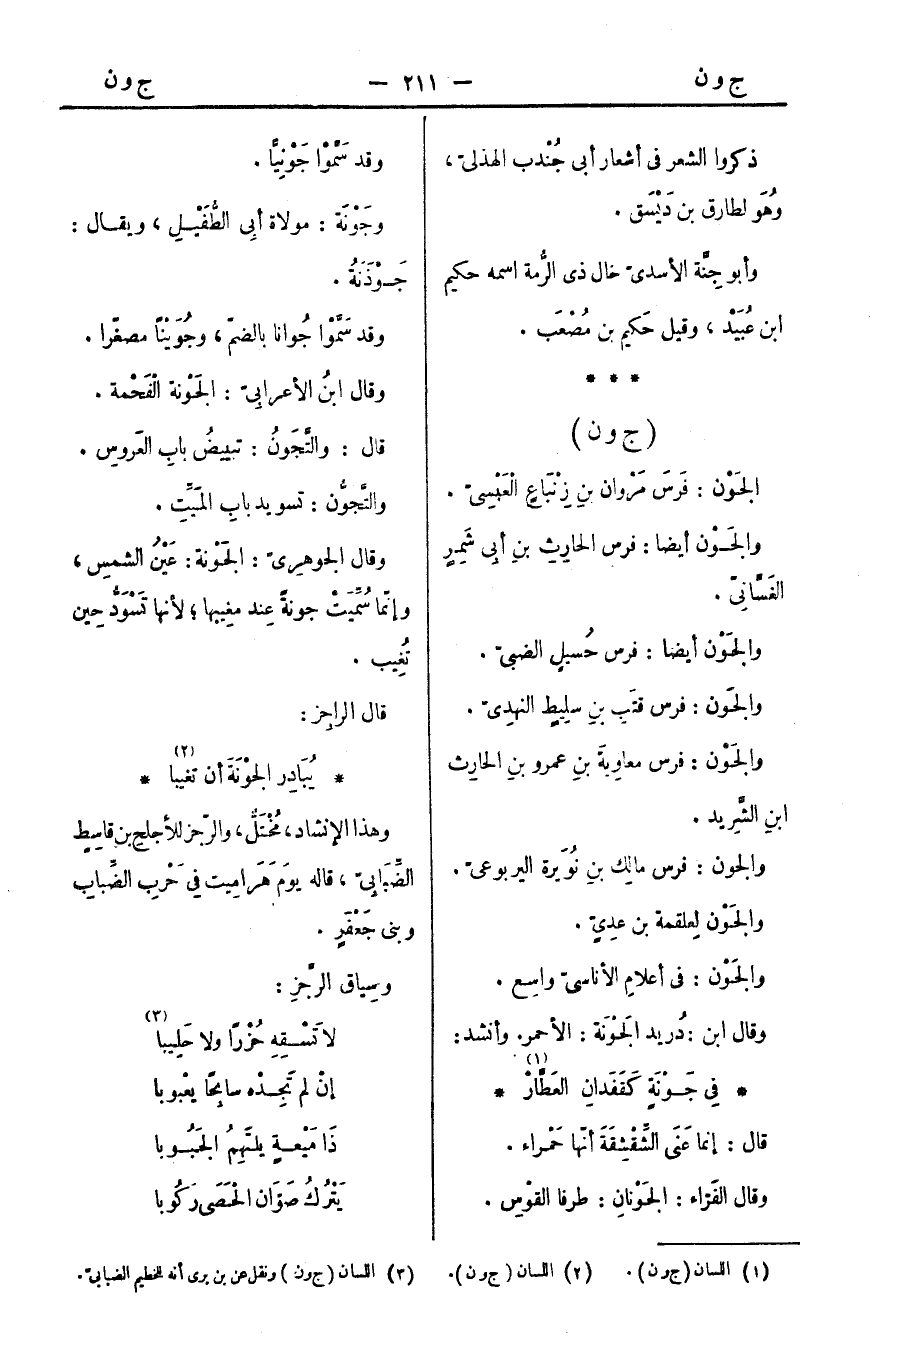 ج ون — ٢١١ — ج ون
ذكروا الشعر فى أشعار أبى جُنْدب الهذلىّ ،
وهُوَ لطارق بن دَيْسَق .
وأبو جِنَّة الأسدىّ خال ذى الرُّمة اسمه حكيم
ابن عُبَيْد ، وقيل حَكيم بن مُصْعَب .
* * *
( ج ون )
الجَوْن : فَرَسَ مَرْوان بنِ زِنْبَاعٍ العَبْسىّ .
والجَوْن أيضا : فرس الحارِث بنِ أبى شَمِرٍ
الغَسَّانىّ .
والجَوْن أيضا : فرس حُسيلٍ الضبىّ .
والجَون : فرس قتَب بنِ سلِيطٍ النهدىّ .
والجَوْن : فرس معاوِيةَ بنِ عمرو بنِ الحارِث
ابنِ الشَّرِيد .
والجون : فرس مالِك بنِ نُوَيرة اليربوعىّ .
والجَوْن لِعلقمة بن عدِىٍّ .
والجَوْن : فى أعلامِ الأناسىّ واسِع .
وقال ابن : دُريد الجَوْنَة : الأحمر. وأنشد :
* فِى جَوْنَةٍ كَقَفَدانِ العَطَّارْ (١) *
قال : إنما عَنَى الشِّقْشِقَةَ أنّها حَمْراء .
وقال الفَرّاء : الجَوْنانِ : طرفا القَوْس .
وقد سَمَّوْا جَوْنِيًّا .
وجَوْنَة : مولاة أبِى الطُّفَيْلِ ، ويقال :
جَوْذَنَةُ .
وقد سَمَّوْا جُوانا بالضمّ ، وجُوَيْنًا مصغّرا .
وقال ابنُ الأعرابِىّ : الجَوْنة الْفَحْمة .
قال : والتَّجَونُ : تبييضُ بابِ العَروسِ .
والتَّجوُّن : تسويد بابِ المَيِّتِ .
وقال الجوهرىّ : الجَوْنة : عَيْنُ الشمسِ ،
وإنّما سُمِّيَتْ جونةً عِند مغيبِها ؛ لأنها تَسْوَدُّ حِين
تَغِيب .
قال الراجِز :
* يُبَادِر الجَوْنَةَ أن تغيبا (٢) *
وهذا الإنشاد ، مُخْتَلٌّ ، والرّجز للأجلحِ بن قاسِطٍ
الضِّبَابِىّ ، قاله يومَ هَرَامِيت فى حَرْبِ الضِّباب
وبنى جَعْفَرٍ .
وسِياق الرَّجزِ :
لا تَسْقِهِ حُزْرًا ولا حَلِيبا (٣)
إنْ لم تَجِدْه سابِحًا يعْبوبا
ذَا مَيْعةٍ يلتَهِمُ الجَبُوبا
يَتْرُكُ صَوَّان الحَصَى رَكُوبا
(١) اللسان (ج ون) . (٢) اللسان ( ج ون ) . (٣) اللسان ( ج ون ) ونقل عن بن برى أنه للخطيم الضبابىّ .